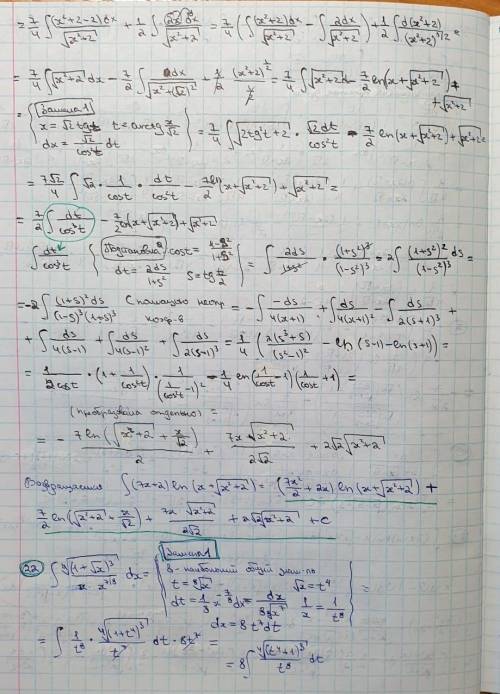 = 7/4 ∫ (x²+2-2)dx / √(x²+2) + 1/2 ∫ 2x dx / √(x²+2) = 7/4 ( ∫ (x²+2)dx / √(x²+2) - ∫ 2dx / √(x²+2) ) + 1/2 ∫ d(x²+2) / (x²+2)^(1/2) =
= 7/4 ∫ √(x²+2) dx - 7/2 ∫ dx / √(x²+(√2)²) + 1/2 (x²+2)^(1/2) / (1/2) = 7/4 ∫ √(x²+2) - 7/2 ln(x+√(x²+2)) +
+ √(x²+2)
= { Замена 1
x = √2 tgt t = arctg x/√2
dx = √2/cos²t dt } = 7/4 ∫ √(2tg²t+2) · √2dt/cos²t - 7/2 ln(x+√(x²+2)) + √(x²+2) =
= 7√2/4 ∫ √2 · 1/cost · dt/cos²t - 7/2 ln(x+√(x²+2)) + √(x²+2) =
= 7/2 ∫ dt/cos³t - 7/2 ln(x+√(x²+2)) + √(x²+2)
∫ dt/cos³t { Подстановка cost = (1-s²)/(1+s²)
dt = 2ds/(1+s²) s = tg t/2 } = ∫ 2ds/(1+s²) · (1+s²)³/(1-s²)³ = 2∫ (1+s²)² ds/(1-s²)³ =
= -2 ∫ (1+s²)² ds / (1-s)³(1+s)³ С помощью неопр коэф-в = -∫ -ds/4(s+1) + ∫ ds/4(s+1)² - ∫ ds/2(s+1)³ +
+ ∫ ds/4(s-1) + ∫ ds/4(s-1)² + ∫ ds/2(s-1)³ = 1/4 ( 2(s³+s)/(s²-1)² - ln(s-1) - ln(s+1) ) =
= 1/2cost · (1 + 1/cos²t) · 1/(1/cos²t - 1)² - 1/4 ln(1/cost - 1)(1/cost + 1) =
(преобразовав отдельно) =
= - 7 ln(√(x²+2) + x/√2) / 2 + 7x√(x²+2) / 2√2 + 2√2 √(x²+2)
Возвращаемся ∫ (7x+2) ln(x+√(x²+2)) = (7x²/2 + 2x) ln(x+√(x²+2)) +
7/2 ln(√(x²+2) + x/√2) + 7x √(x²+2) / 2√2 + 2√2 √(x²+2) + c
22 ∫ ∜((1+√x)³) / x · x^(7/8) dx = { Замена 1
8 - наибольший общий знам-ль
t = ⁸√x √x = t⁴
dt = 1/8 x^(-7/8) dx = dx / 8 ⁸√x⁷ 1/x = 1/t⁸
dx = 8t⁷dt } =
= ∫ 1/t⁸ · ∜((1+t⁴)³) / t⁷ dt · 8t⁷ =
= 8 ∫ ∜((t⁴+1)³) / t⁸ dt